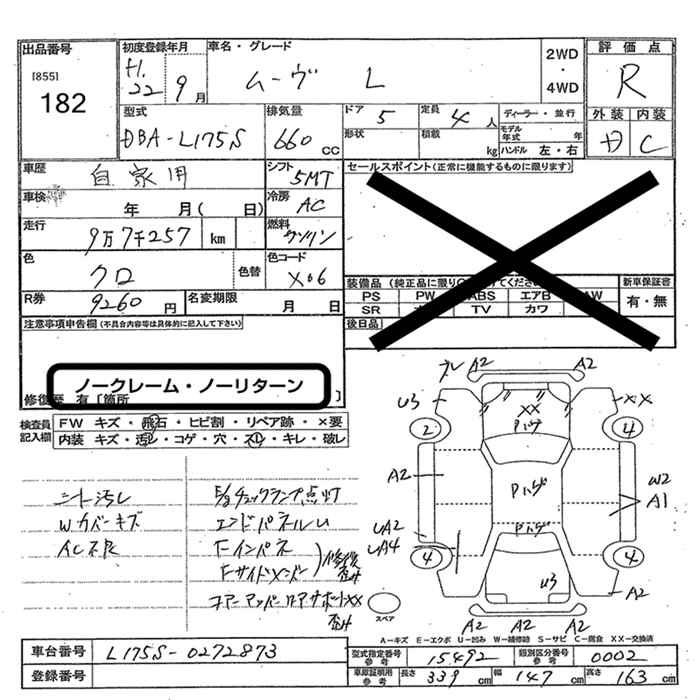 出品番号
[855]
182
初度登録年月
H.
22 9月
車名・グレード
ムーヴ L
2WD
・
4WD
評価点
R
外装 内装
D C
型式
DBA-L175S
排気量
660 CC
ドア 5
定員 4 人
ディーラー・並行
形状
積載
kg
モデル年式 年
ハンドル 左・右
車歴
自家用
シフト
5MT
セールスポイント(正常に機能するものに限ります)
車検
年 月( 日)
冷房
AC
走行
9万7千257 km
燃料
ガソリン
色
クロ
色替
色コード
X06
R券
9260 円
名変期限
月 日
装備品 (純正品に限り
けてくださ
新車保証書
有・無
PS PW ABS エアB AW
SR TV カワ
後日品
注意事項申告欄 (不具合内容等は具体的に記入して下さい)
ノークレーム・ノーリターン
修復歴 有 〔箇所 〕
検査員記入欄
FW キズ・飛石・ヒビ割・リペア跡・×要
内装 キズ・汚レ・コゲ・穴・スレ・キレ・破レ
シート汚レ
Wカバーキズ
AC不良
E/gチェックランプ点灯
エンドパネルU
Fインパネ
Fサイドメンバー
修復歪み
コアーアッパーロアサポートXX
歪み
A2 A2
U3 XX
XX
Pハゲ
2 4
A2
Pハゲ
W2
A1
UA2
UA4
Pハゲ
4 4
U3
A2
A2 A2 A2
スペア
A-キズ E-エクボ U-凹み W-補修跡 S-サビ C-腐食 XX-交換済
車台番号 L175S-0272873
登録番号
型式指定番号 参考 15492
類別区分番号 参考 0002
車庫証明用 参考 長さ 339 cm 幅 147 cm 高さ 163 cm